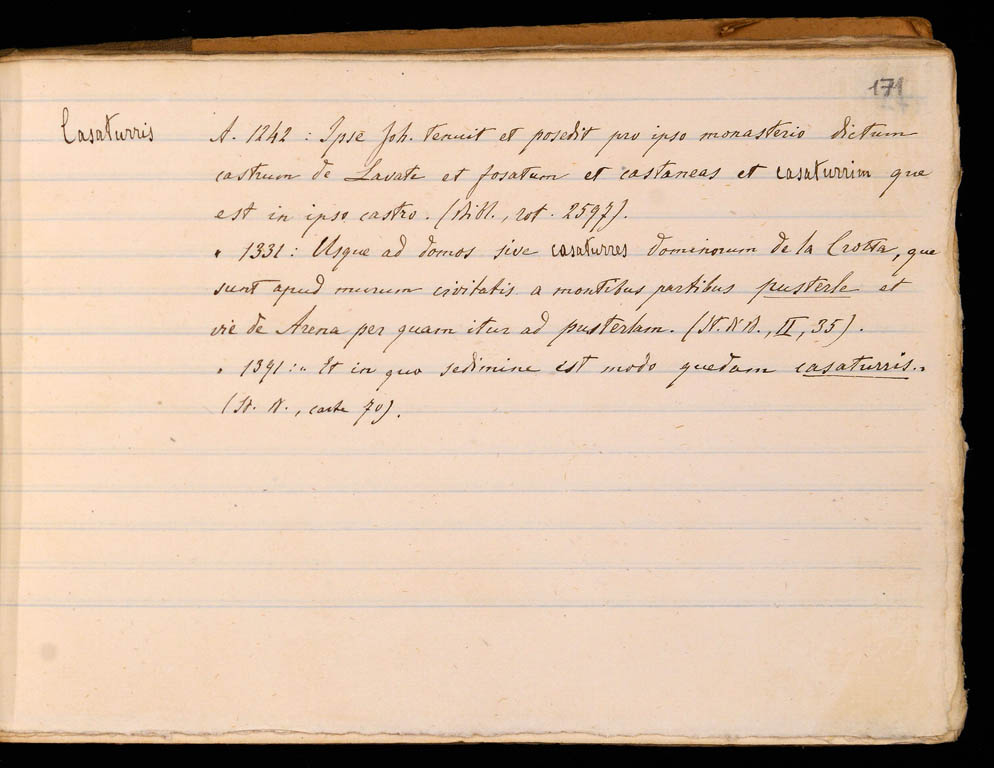 171
Casaturris A. 1242 : Ipse Joh. tenuit et posedit pro ipso monasterio dictum
castrum de Lavate et fosatum et castaneas et casaturrim que
est in ipso castro. (Bibl., rot. 2597).
" 1331 : Usque ad domos sive casaturres dominorum de la Crotta, que
sunt apud murum civitatis a montibus partibus pusterle et
vie de Arena per quam itur ad pusterlam. (II, 35).
" 1391 : " Et in quo sedimine est modo quedam casaturris. "
(carte 70).